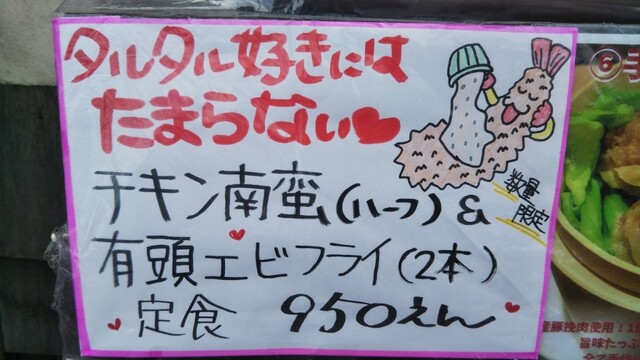 タルタル好きには
たまらない♥
チキン南蛮(ハーフ)&
数量
限定
有頭エビフライ(2本)
定食 950えん
⑥手
豚挽肉使用!
旨味たっぷ